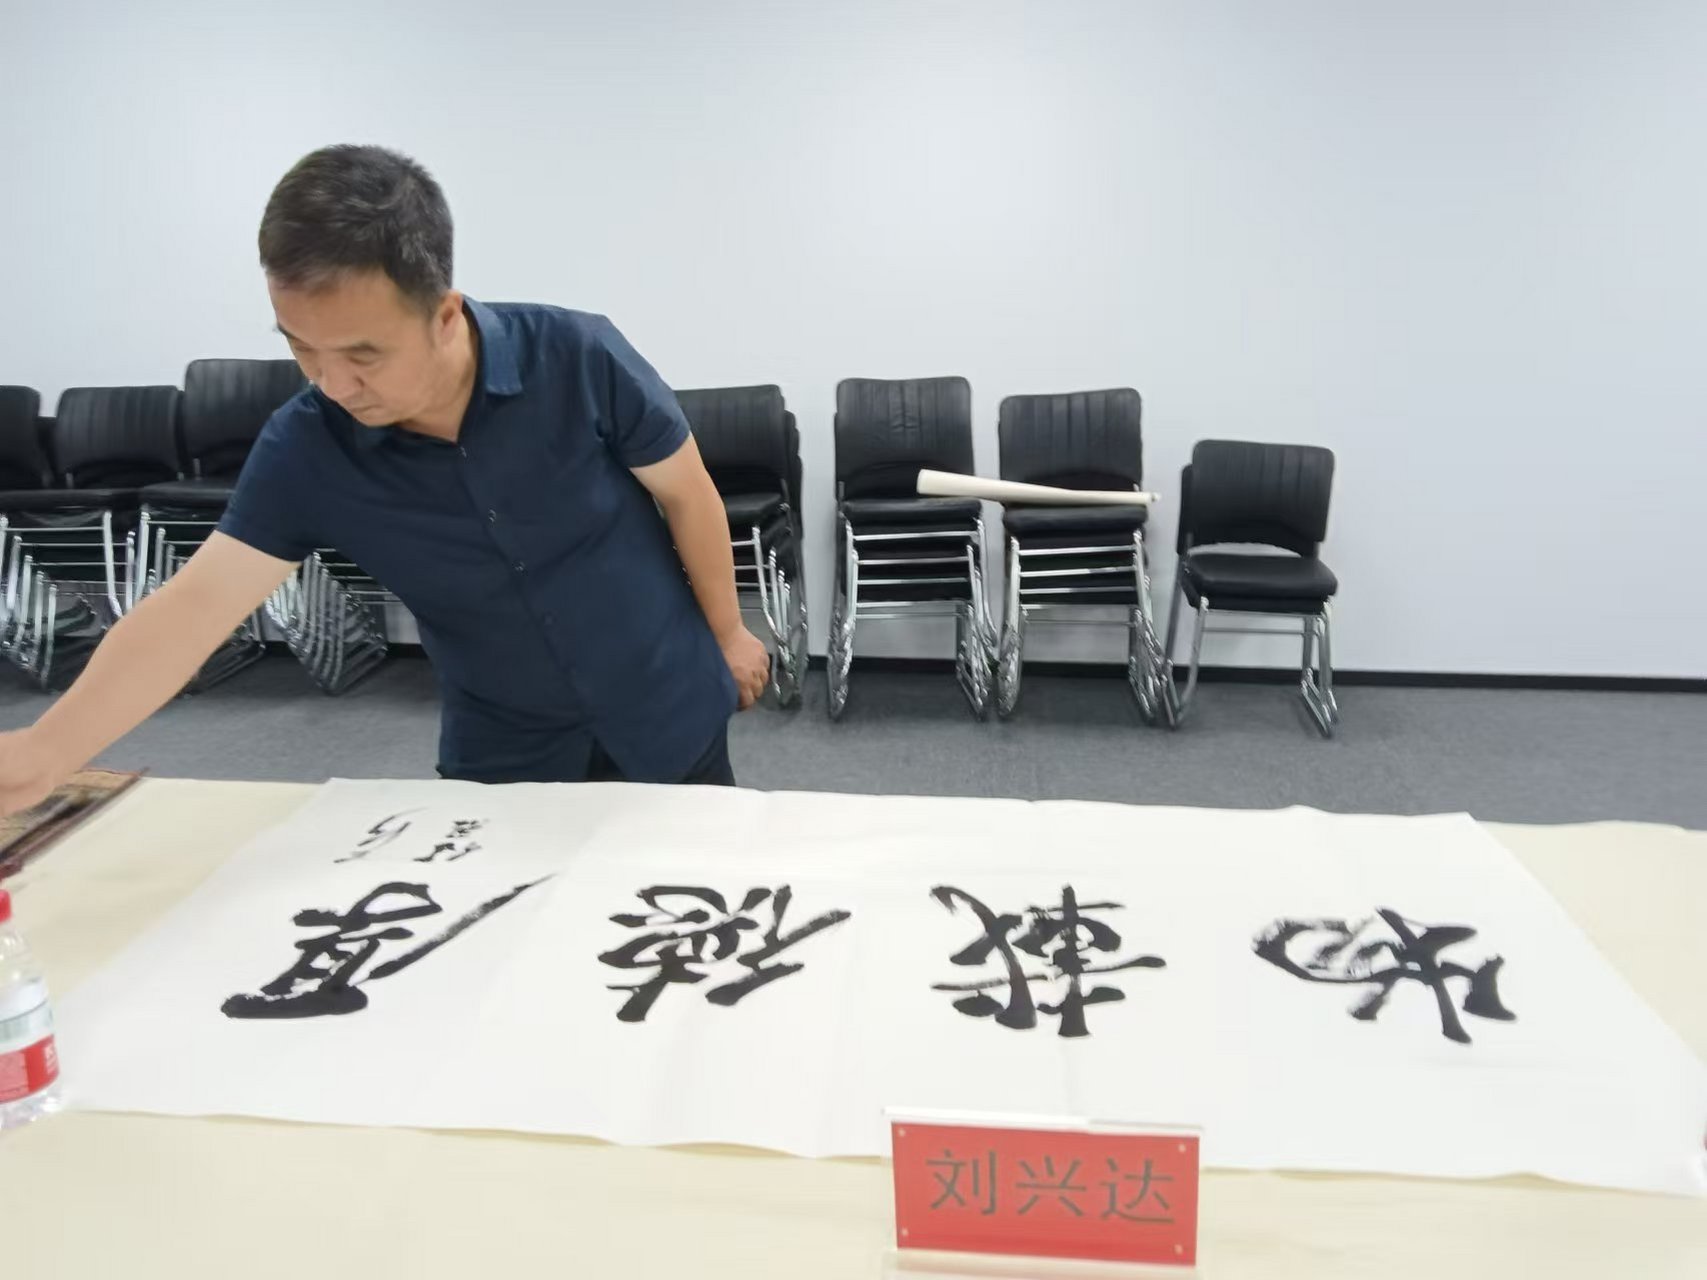 厚德載物
刘兴达